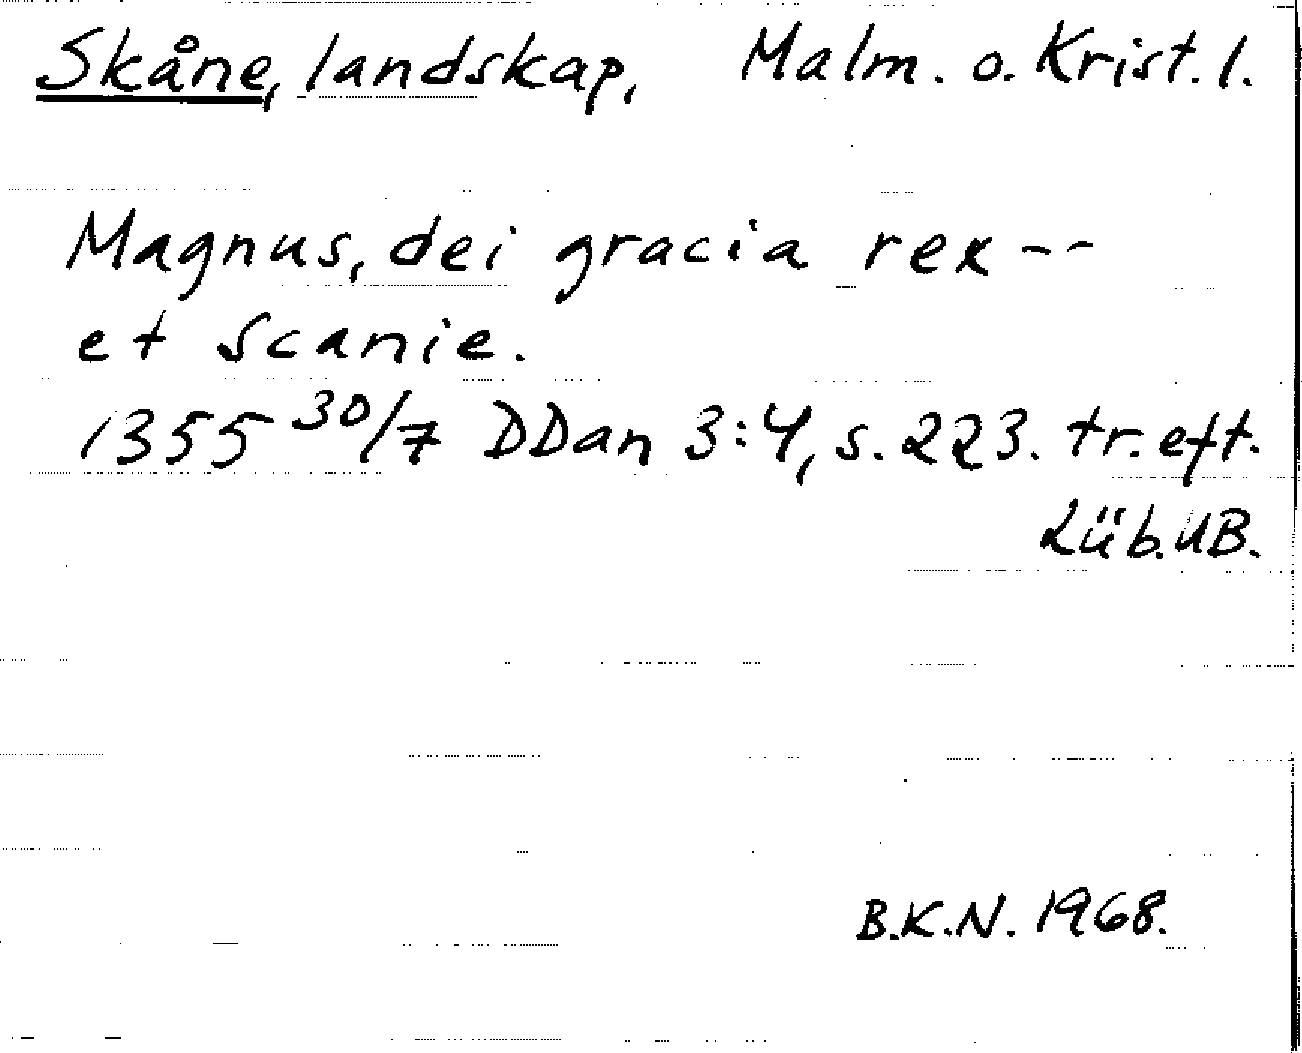 Skåne, landskap, Malm. o. Krist. l.
Magnus, dei gracia rex --
et Scanie.
1355 30/7 DDan 3:4, s. 223. tr. eft.
Lüb. UB.
B.K.N. 1968.